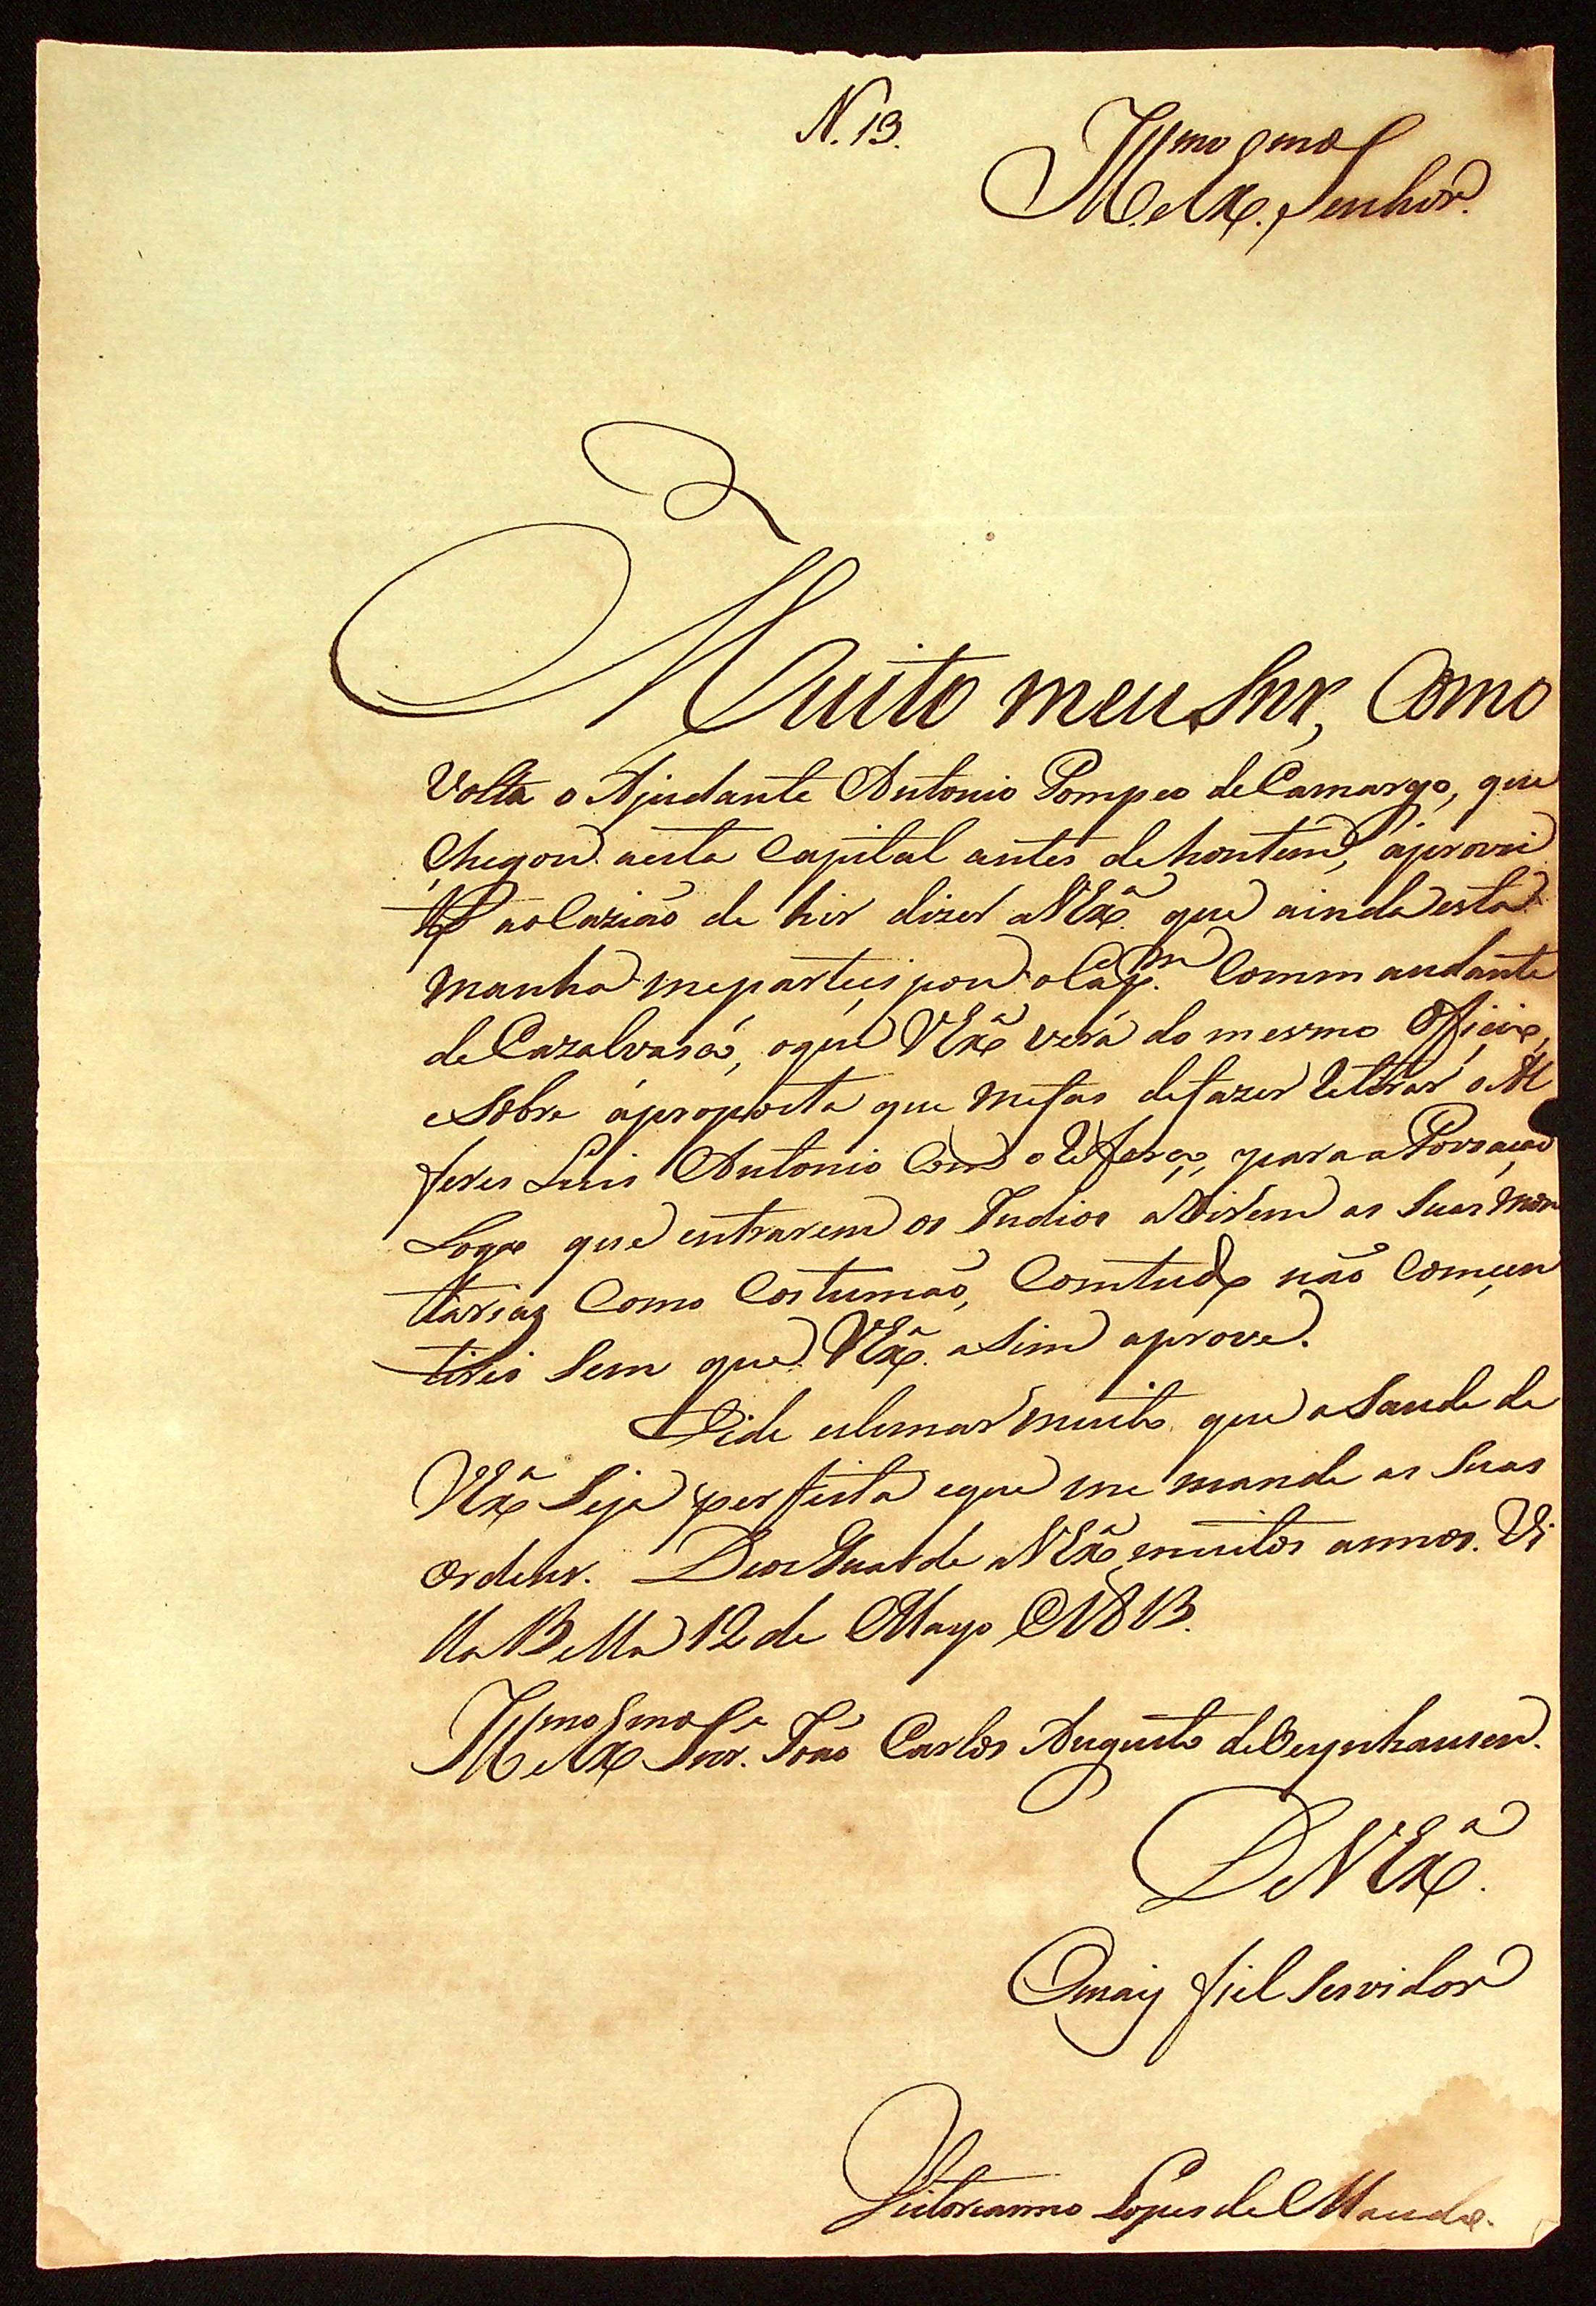 N. 13.
Ill.mo e Ex.mo Senhor.
Muito meu Snr, Como
Volta o Ajudante Antonio Pompeo de Camargo, que
Chegou aesta Capital antes dehontem, áprovei
to aoCazião de hir dizer aVEx.ª que ainda esta
manha meparteçipou o Cap.m Commandante
de Cazalvasco, oque VEx.ª verá do mesmo Ofiçio,
eSobre áproposta que mefas defazer Retirar o Al
feres Luis Antonio Com o Reforço, para a Povoação
Logo que entrarem os Indios aVirem as Suas Mon
tarias Como Costumão, Comtudo não Comçen
tirei Sem que VEx.ª aSim aprove.
Eide estimar muito que aSaude de
VEx.ª Seja perfeita eque me mande as Suas
Ordens. Deos Guarde aVEx.ª muitos annos. Vi
lla Bella 12 de Mayo 1813.
Ill.mo e Ex.mo Snr. João Carlos Augusto deOeynhausen.
De VEx.ª
Omais fiel Servidor
Victorianno Lopes de Macedo.